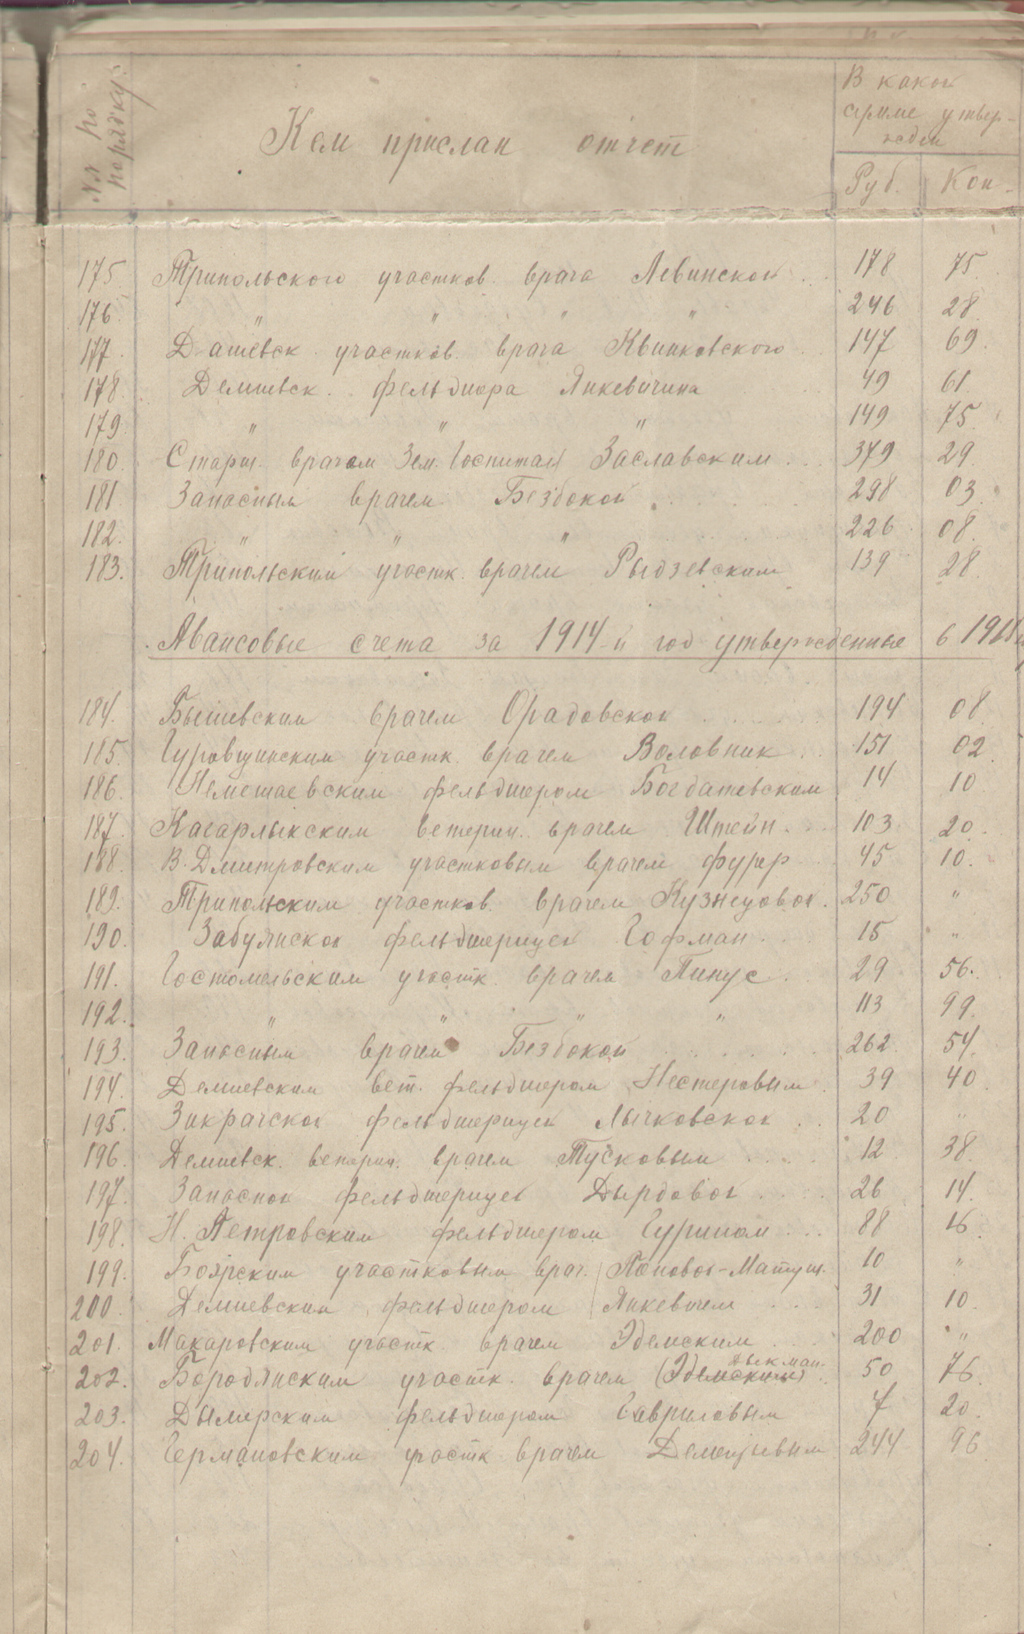 №№ по порядку.
Кем прислан отчет
В какой сумме утвержден
Руб. Коп.
175. Трипольского участков. врача Левинской 178 75
176. " " " " 246 28
177. Дашевск. участков. врача Квинковского 147 69
178. Демиевск. фельдшера Янкевичина 49 61
179. " " " 149 75
180. Старш. врачем Зем. Госпитал Заславским 379 29
181. Запасным врачем Безбокой 298 03
182. " " " 226 08
183. Трипольским участк. врачем Рыдзевским 139 28
Авансовые счета за 1914-й год утвержденные в
184. Бышевским врачем Орадовской 194 08
185. Гуровщинским участк. врачем Воловник 151 02
186. Немешаевским фельдшером Богдашевским 14 10
187. Кагарлыкским ветерин. врачем Штейн 103 20
188. В. Дмитровским участковым врачем Фурер 45 10
189. Трипольским участков. врачем Кузнецовой 250 "
190. Забуянской фельдшерицей Гофман 15 "
191. Гостомельским участк. врачем Пинус 29 56
192. " " " " 113 99
193. Запасным врачем Безбокой 262 54
194. Демиевским вет. фельдшером Нестеровым 39 40
195. Закрачской фельдшерицей Лычковской 20 "
196. Демиевск. ветерин. врачем Тучковым 12 38
197. Запасной фельдшерицей Дырдовой 26 14
198. Н. Петровским фельдшером Гуриным 88 16
199. Боярским участковым врач. Поповой-Матуш. 10 "
200. Демиевским фельдшером Янкевичем 31 10
201. Макаровским участк. врачем Эдемским 200 "
202. Бородянским участк. врачем (Эдемским) 50 76
203. Дымерским фельдшером Гавриловым 7 20
204. Германовским участк. врачем Дементьевым 244 96